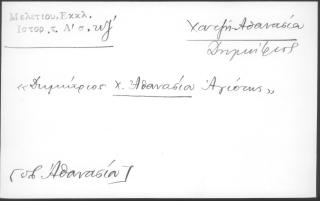 Μελετίου, Εκκλ.
Ιστορ, τ. Α' σ. ιζ'
Χατζῆ Αθανασία
Δημήτριος
«Δημήτριος χ. Ἀθανασία Ἁγιώτης»
[υἱὸς Ἀθανασία]